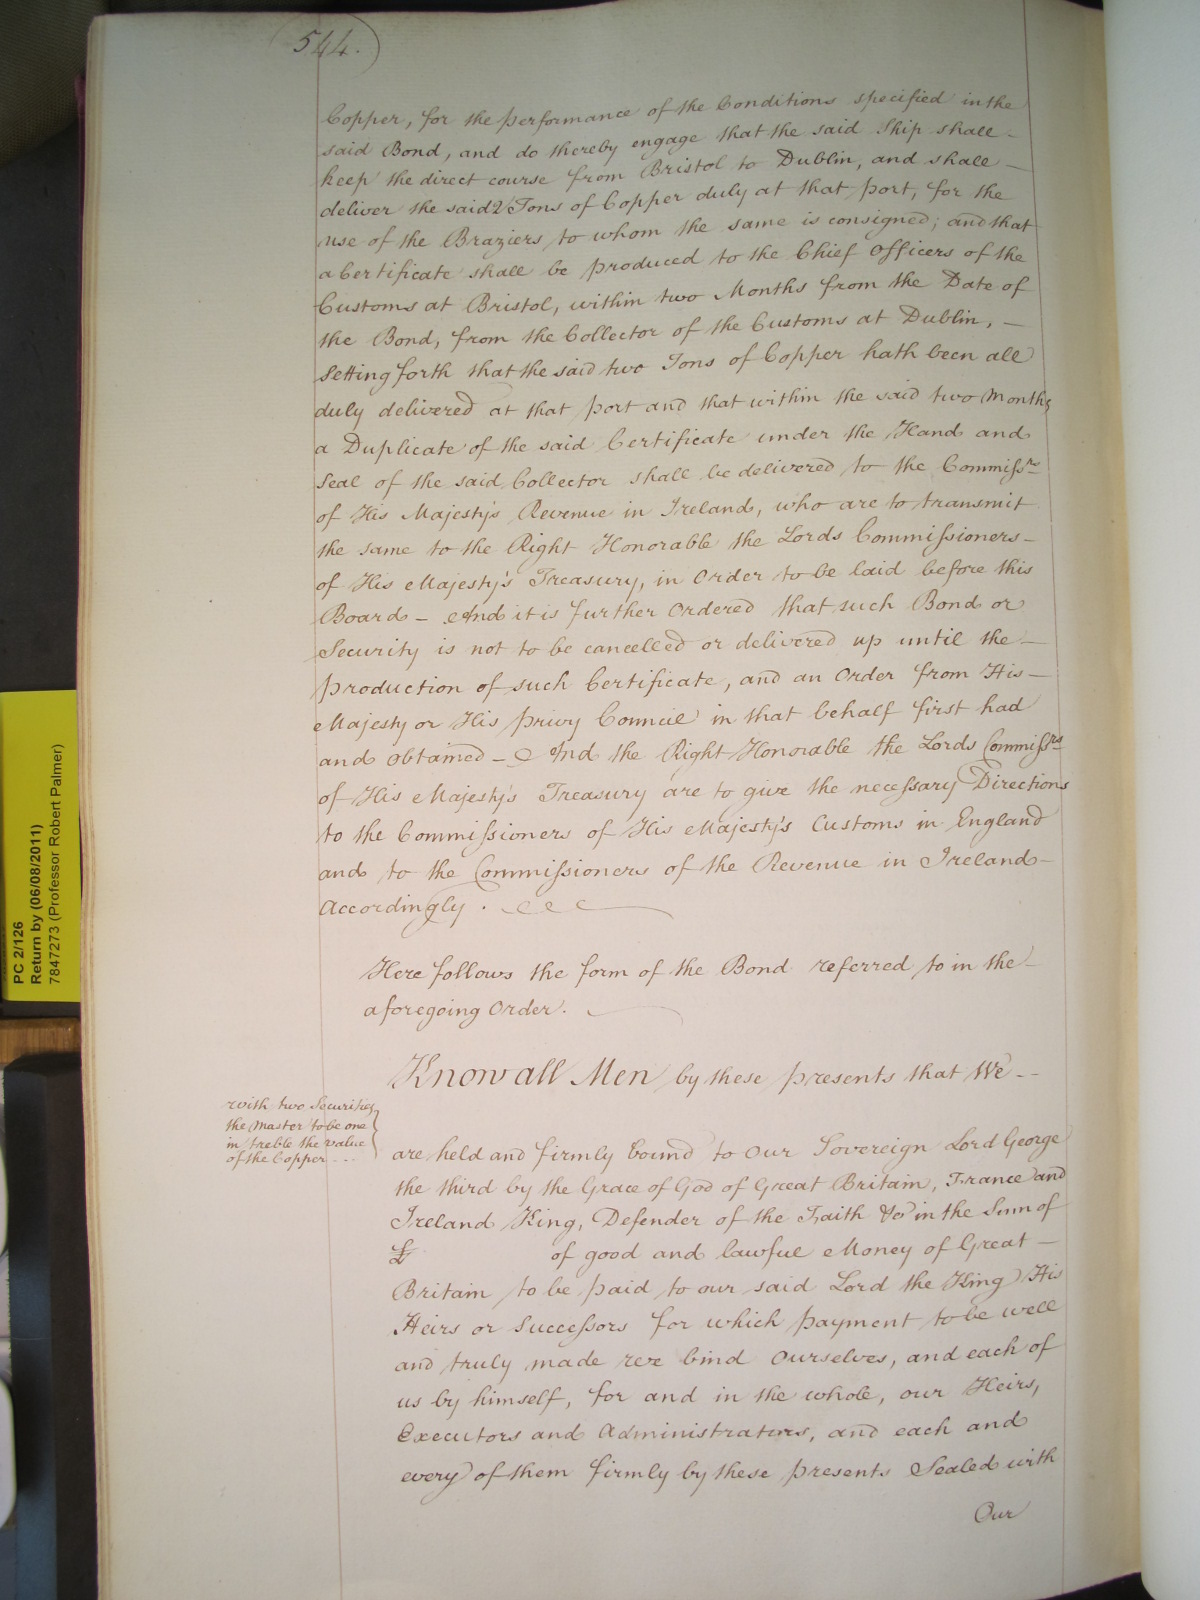 544.
Copper, for the performance of the Conditions specified in the
said Bond, and do thereby engage that the said Ship shall -
keep the direct course from Bristol to Dublin, and shall -
deliver the said 2 Tons of Copper duly at that port, for the
use of the Braziers, to whom the same is consigned; and that
a Certificate shall be produced to the Chief Officers of the
Customs at Bristol, within two Months from the Date of
the Bond, from the Collector of the Customs at Dublin, -
Setting forth that the said two Tons of Copper hath been all
duly delivered at that port and that within the said two Months
a Duplicate of the said Certificate under the Hand and
Seal of the said Collector shall be delivered to the Commissrs
of His Majesty's Revenue in Ireland, who are to transmit
the same to the Right Honorable the Lords Commissioners -
of His Majesty's Treasury, in Order to be laid before this
Board - And it is further Ordered that such Bond or
Security is not to be cancelled or delivered up until the -
production of such Certificate, and an Order from His -
Majesty or His privy Council in that behalf first had
and obtained - And the Right Honorable the Lords Commissrs
of His Majesty's Treasury are to give the necessary Directions
to the Commissioners of His Majesty's Customs in England
and to the Commissioners of the Revenue in Ireland -
Accordingly.
Here follows the form of the Bond referred to in the -
aforegoing Order.
Know all Men by these presents that We --
with two Securities
the Master to be one
in treble the value
of the Copper ---
are held and firmly bound to Our Sovereign Lord George
the third by the Grace of God of Great Britain, France and
Ireland King, Defender of the Faith &c in the Sum of
£ of good and lawful Money of Great -
Britain to be paid to our said Lord the King His
Heirs or Successors for which payment to be well
and truly made we bind Ourselves, and each of
us by himself, for and in the whole, our Heirs,
Executors and Administrators, and each and
every of them firmly by these presents Sealed with
Our
PC 2/126
Return by (06/08/2011)
7847273 (Professor Robert Palmer)